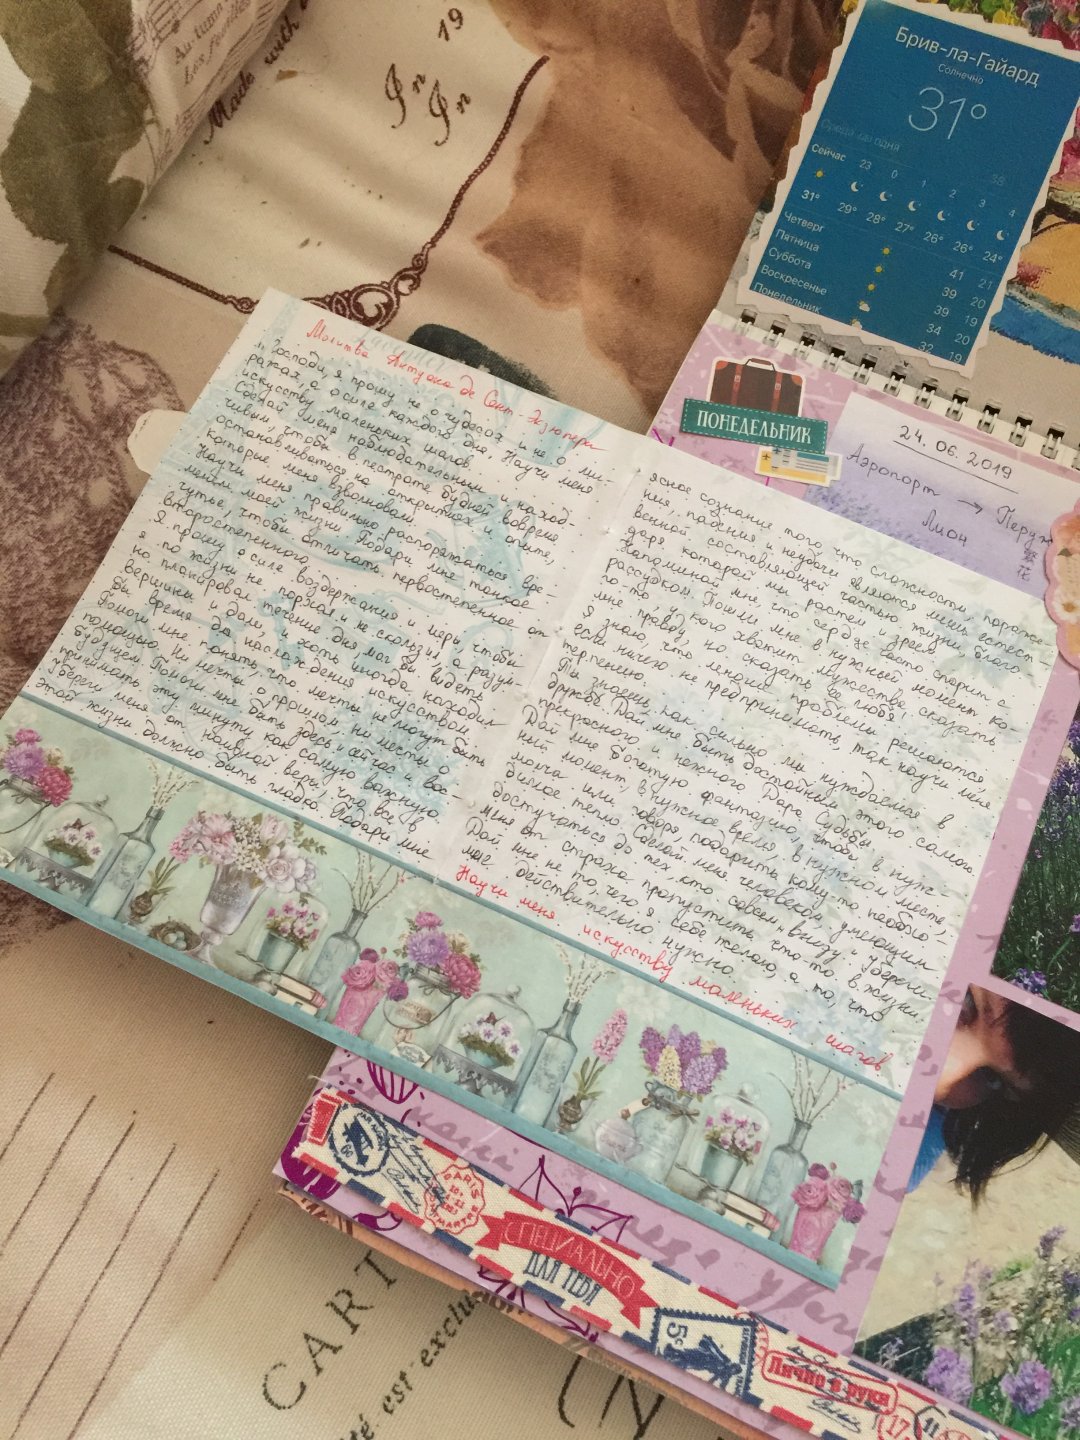 Autumn
Les feuilles
Made with
19
In
In
Брив-ла-Гайард
Солнечно
31°
Среда сегодня
38
Сейчас 23 0 1 2 3 4
31° 29° 28° 27° 26° 26° 24°
Четверг 41 21
Пятница 39 20
Суббота 39 19
Воскресенье 34 20
Понедельник 32 19
ПОНЕДЕЛЬНИК
24.06.2019
Аэропорт → Перуж
Лион
Молитва Антуана де Сент-Экзюпери
"Господи, я прошу не о чудесах и не о ми-
ражах, а о силе каждого дня. Научи меня
искусству маленьких шагов.
Сделай меня наблюдательным и наход-
чивым, чтобы в пестроте будней вовремя
останавливаться на открытиях и опыте,
которые меня взволновали.
Научи меня правильно распоряжаться вре-
менем моей жизни. Подари мне тонкое
чутье, чтобы отличать первостепенное от
второстепенного.
Я прошу о силе воздержания и меры, чтобы
я по жизни не порхал и не скользил, а разум-
но планировал течение дня, мог бы видеть
вершины и дали, и хоть иногда находил
бы время для наслаждения искусством.
Помоги мне понять, что мечты не могут быть
помощью. Ни мечты о прошлом, ни мечты о
будущем. Помоги мне быть здесь и сейчас и вос-
принимать эту минуту как самую важную.
Убереги меня от наивной веры, что все в
этой жизни должно быть гладко. Подари мне
ясное сознание того, что сложности, пораже-
ния, падения и неудачи являются лишь естест-
венной составляющей частью жизни, благо-
даря которой мы растем и зреем.
Напоминай мне, что сердце часто спорит с
рассудком. Пошли мне в нужный момент ко-
го-то, у кого хватит мужества сказать
мне правду, но сказать ее любя!
Я знаю, что многие проблемы решаются,
если ничего не предпринимать, так научи меня
терпению.
Ты знаешь, как сильно мы нуждаемся в
дружбе. Дай мне быть достойным этого самого
прекрасного и нежного Дара Судьбы.
Дай мне богатую фантазию, чтобы в нуж-
ный момент, в нужное время, в нужном месте,
молча или говоря, подарить кому-то необхо-
димое тепло. Сделай меня человеком, умеющим
достучаться до тех, кто совсем "внизу". Убереги
меня от страха пропустить что-то в жизни.
Дай мне не то, чего я себе желаю, а то, что
мне действительно нужно.
Научи меня искусству маленьких шагов
PARIS
MONTMARTRE
СПЕЦИАЛЬНО
ДЛЯ ТЕБЯ
5c
Лично в руки
17
CART
est exclu